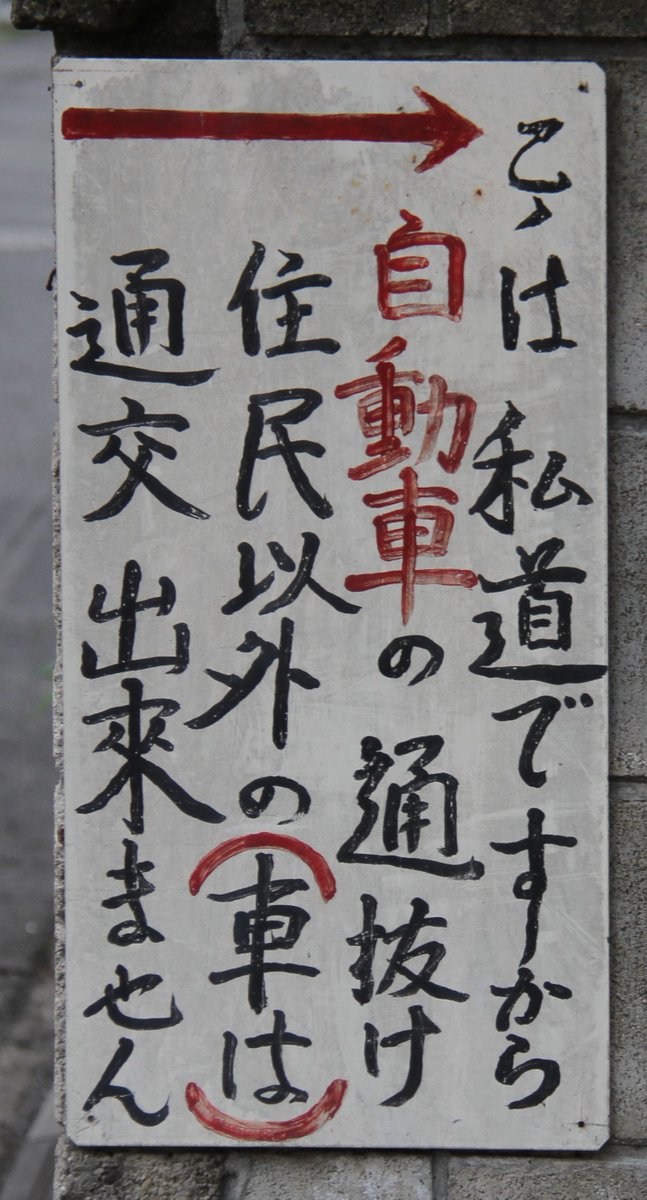 こゝは私道ですから
自動車の通抜け
住民以外の(車は)
通交出來ません